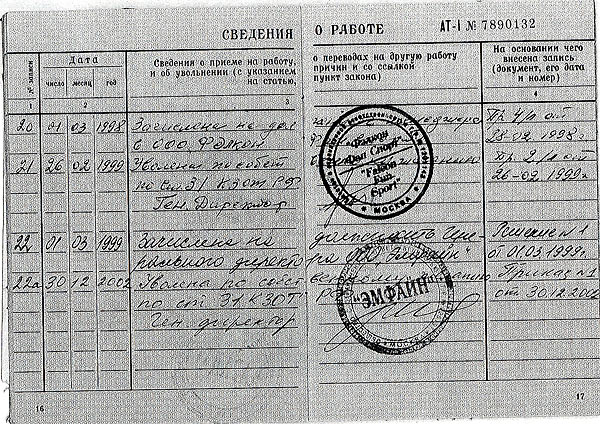 СВЕДЕНИЯ О РАБОТЕ АТ-I № 7890132
№ записи
Дата
число месяц год
Сведения о приеме на работу, о переводах на другую работу
и об увольнении (с указанием причин и со ссылкой
на статью, пункт закона)
На основании чего
внесена запись
(документ, его дата
и номер)
1 2 3 4
20 01 03 1998 Зачислена на дол
в ООО Фэлкон Пр 1/л от
28.02.1998г
21 26 02 1999 Уволена по собст
по ст 31 КЗОТ РФ Пр. 2/л от
Ген. Директор 26-02 1999г
"Фэлкон
Фан Спорт"
"Falcon
Fun
Sport"
МОСКВА
22 01 03 1999 Зачислена на должность Гене-
рального директора ООО "Эмфайн" Решение №1
от 01.03.1999г.
22а 30 12 2002 Уволена по собственному желанию Приказ №1
по ст 31 КЗОТ РФ от 30.12.2002
Ген. директор
"ЭМФАЙН"
МОСКВА
16 17